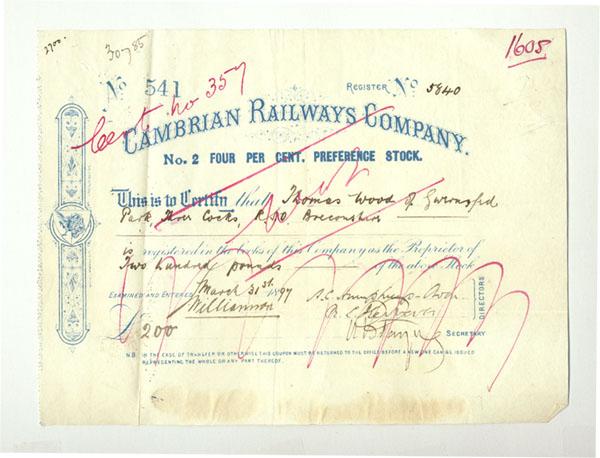 2700.
30785
1608
No 541
Cert no 357
Register No 5840
CAMBRIAN RAILWAYS COMPANY.
No. 2 FOUR PER CENT. PREFERENCE STOCK.
This is to Certify that Thomas Wood of Gwernyfed
Park, Three Cocks, R.S.O. Breconshire
is registered in the books of this Company as the Proprietor of
Two hundred pounds of the above Stock
EXAMINED AND ENTERED March 31st 1897 A.C. Humphreys-Owen
Williamson
DIRECTORS
£ 200 SECRETARY
N.B. IN THE CASE OF TRANSFER OR OTHERWISE THIS COUPON MUST BE RETURNED TO THE OFFICE BEFORE A NEW ONE CAN BE ISSUED
REPRESENTING THE WHOLE OR ANY PART THEREOF.